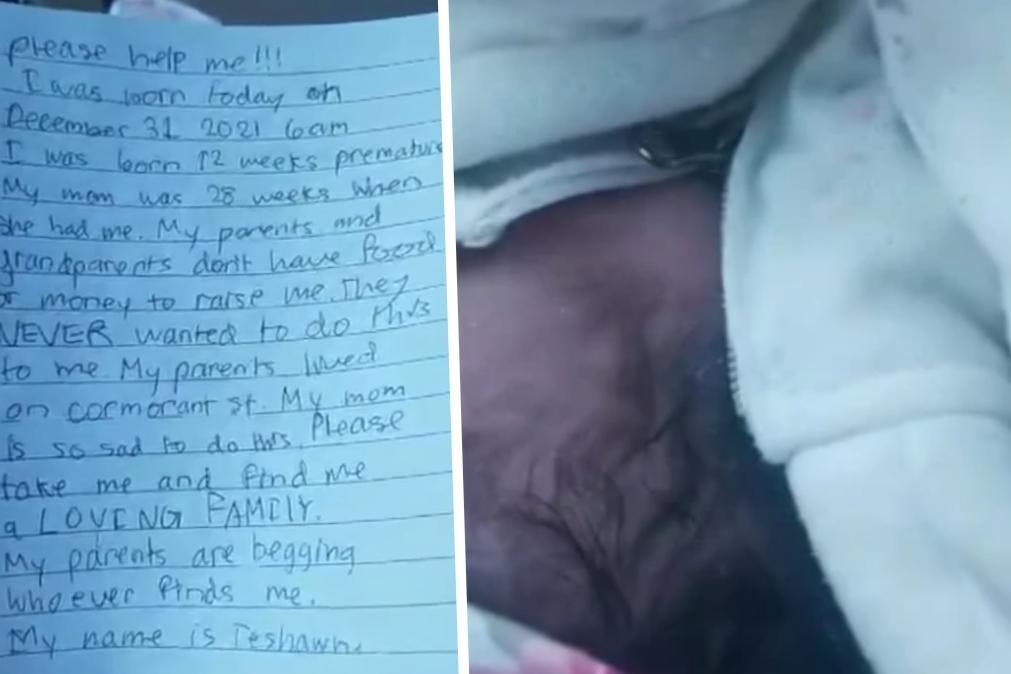 please help me!!!
I was born today on
December 31 2021 6am
I was born 12 weeks premature
My mom was 28 weeks when
she had me. My parents and
grandparents don't have food
or money to raise me. They
NEVER wanted to do this
to me. My parents lived
on cormorant st. My mom
is so sad to do this. Please
take me and find me
a LOVING FAMILY.
My parents are begging
whoever finds me.
My name is Teshawn.